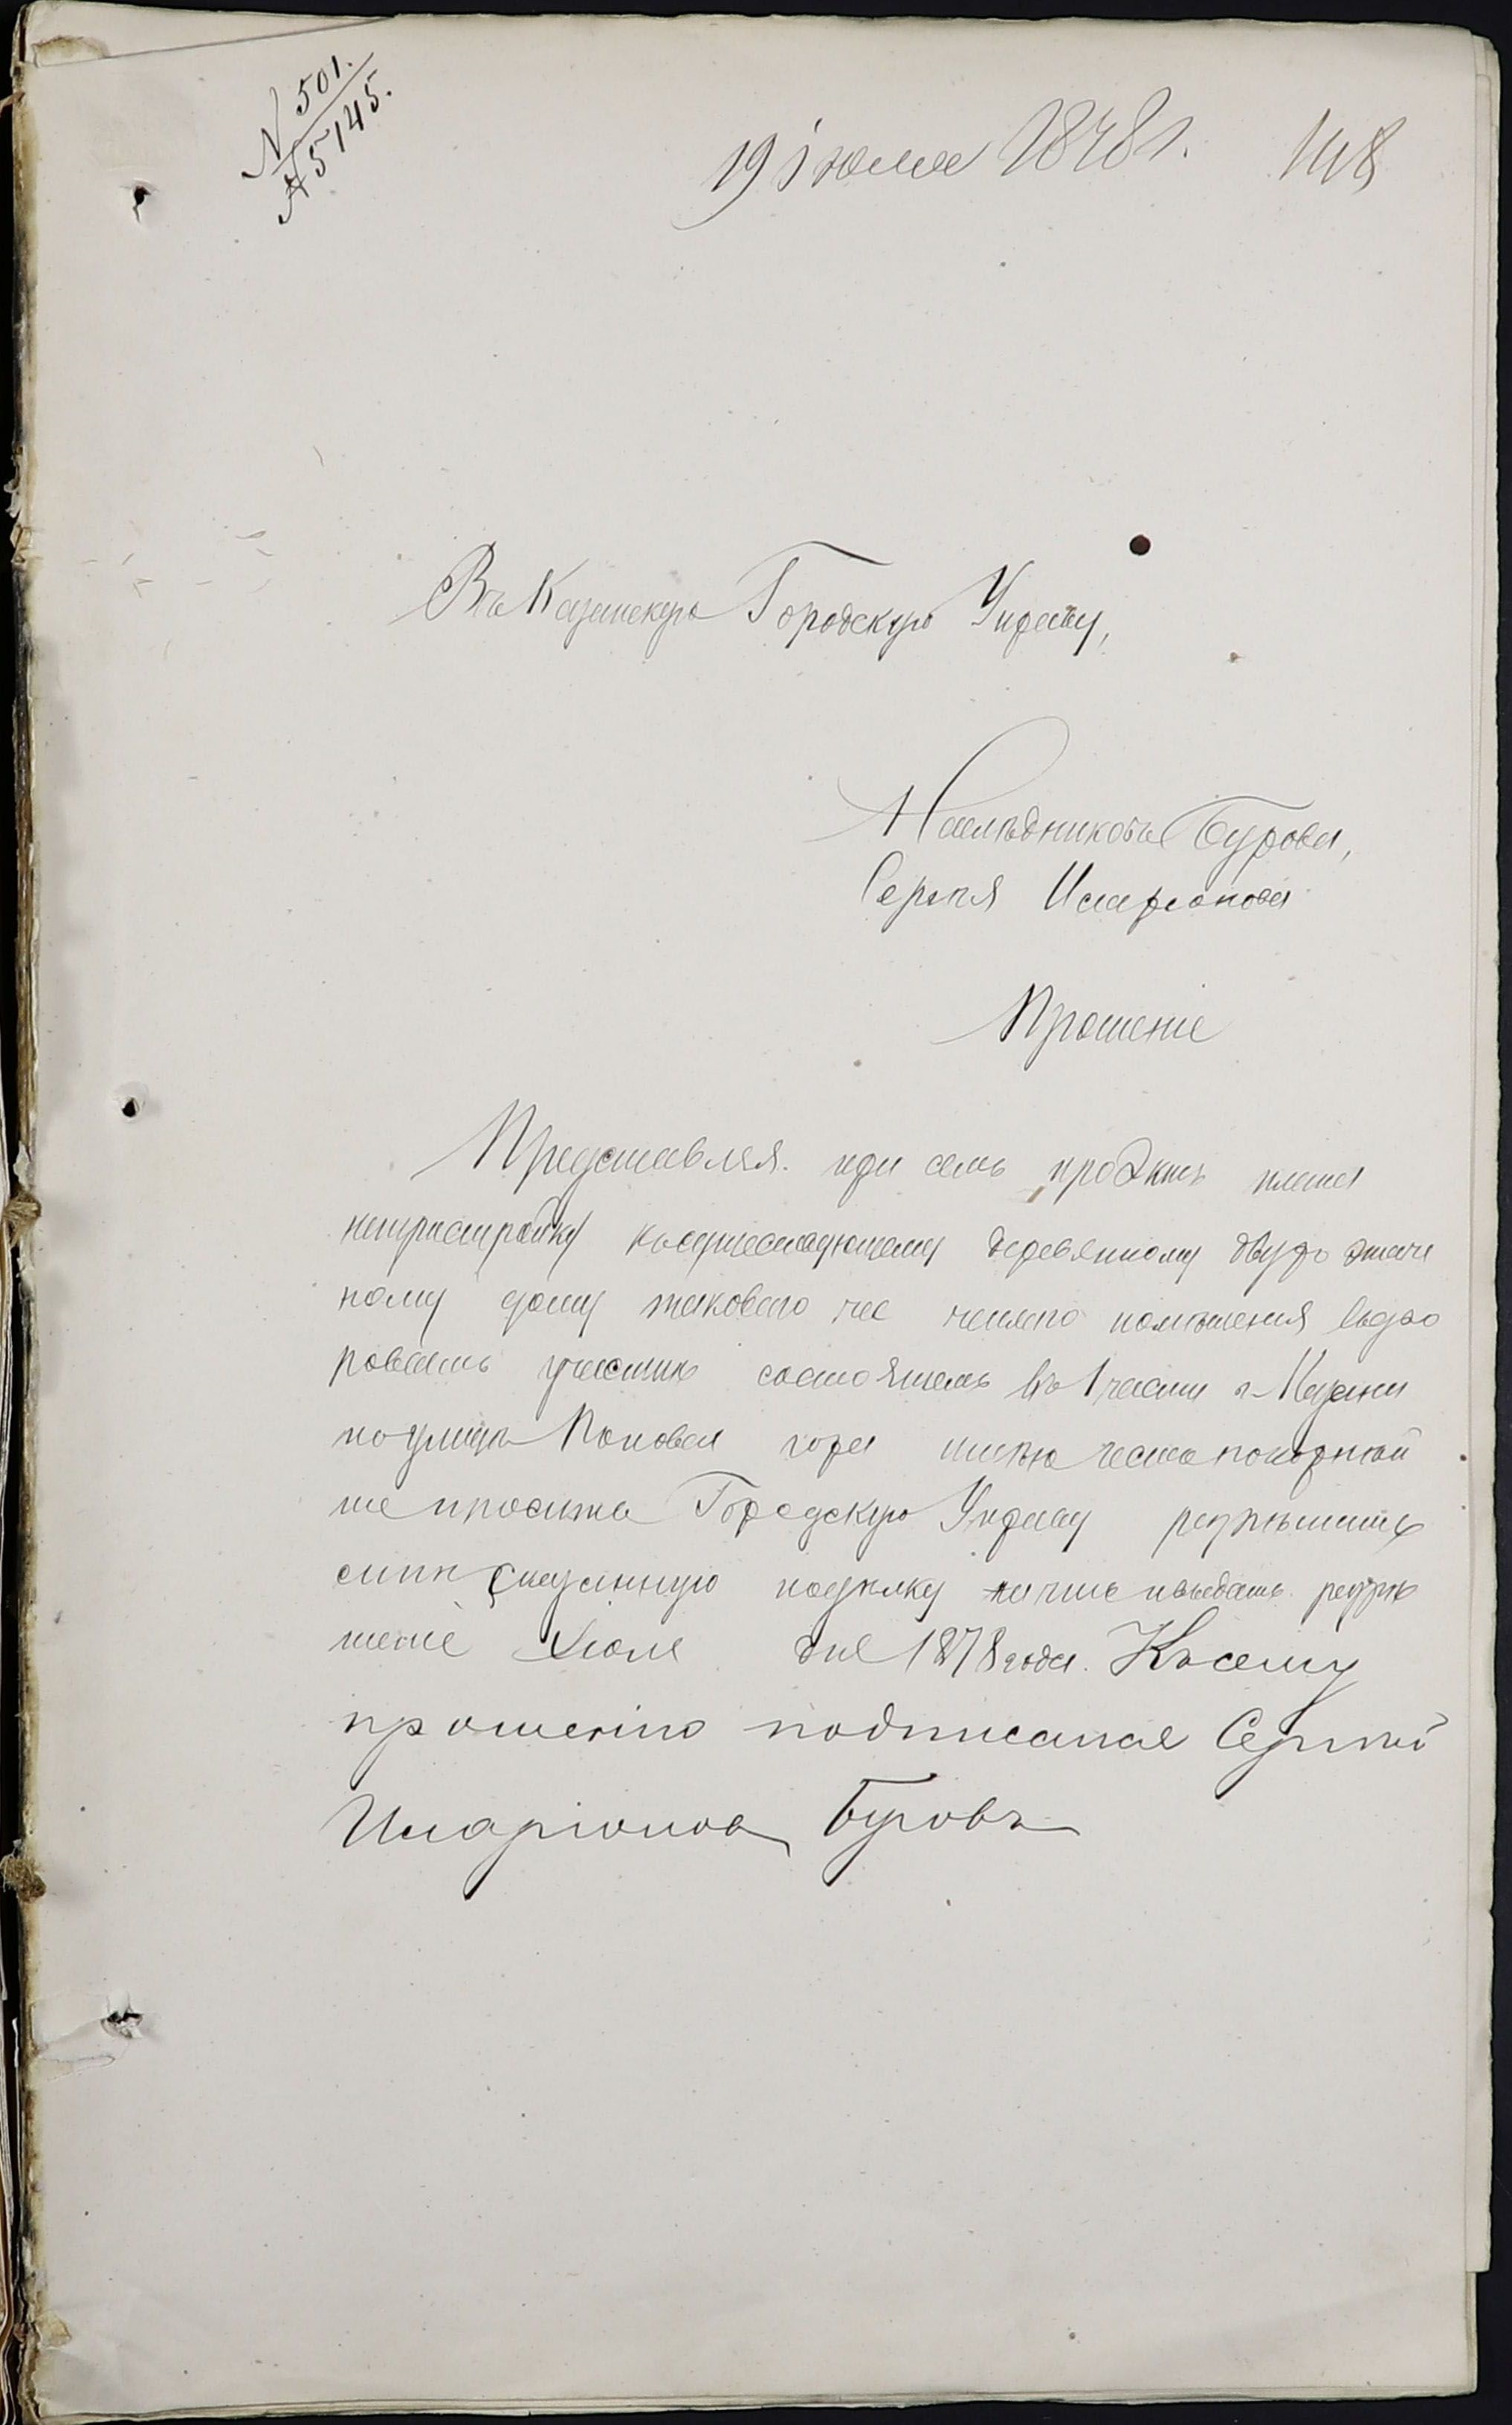 N 501.
А 5145.
19 Iюля 1878 г. 118
Въ Казанскую Городскую Управу,
Наследниковъ Бурова,
Сергѣя Иларионова
Прошеніе
Представляя при семъ проэктъ плана
напристройку къ существующему деревянному двухъ этаж
ному дому таковаго же теплаго помѣщения въ дво
ровомъ участкѣ состоящемъ въ 1 части г. Казани
по улицѣ Попова гора имѣю честь покорнѣй
ше просить Городскую Управу разрѣшить
мнѣ сказанную подѣлку начто и выдать разрѣ
шеніе Июля дня 1878 года. Къ сему
прошенію подписался Сергѣй
Иларіоновъ Буровъ